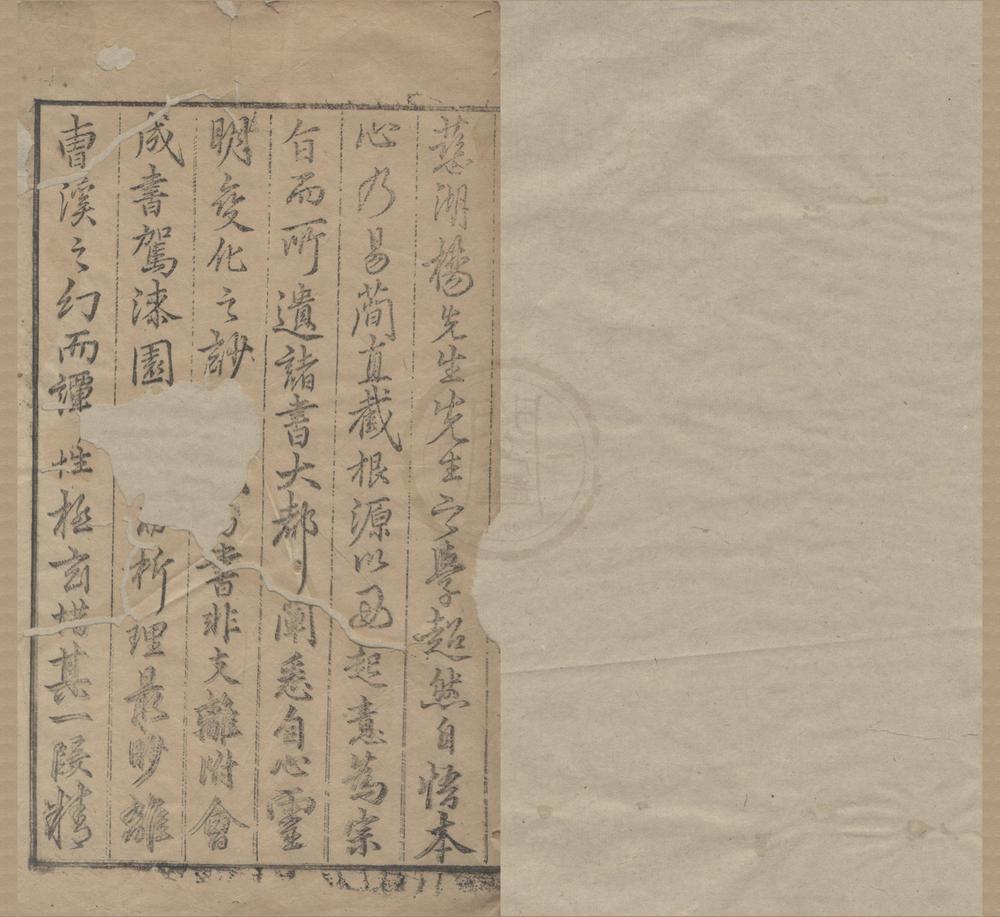 慈湖楊先生先生之學超然自悟本
心乃易簡直截根源以不起意為宗
旨而所遺諸書大都闡悉自心靈
明變化之妙書非支離附會
成書駕漆園析理最眇雖
曹溪之幻而譚性極玄措其一段精